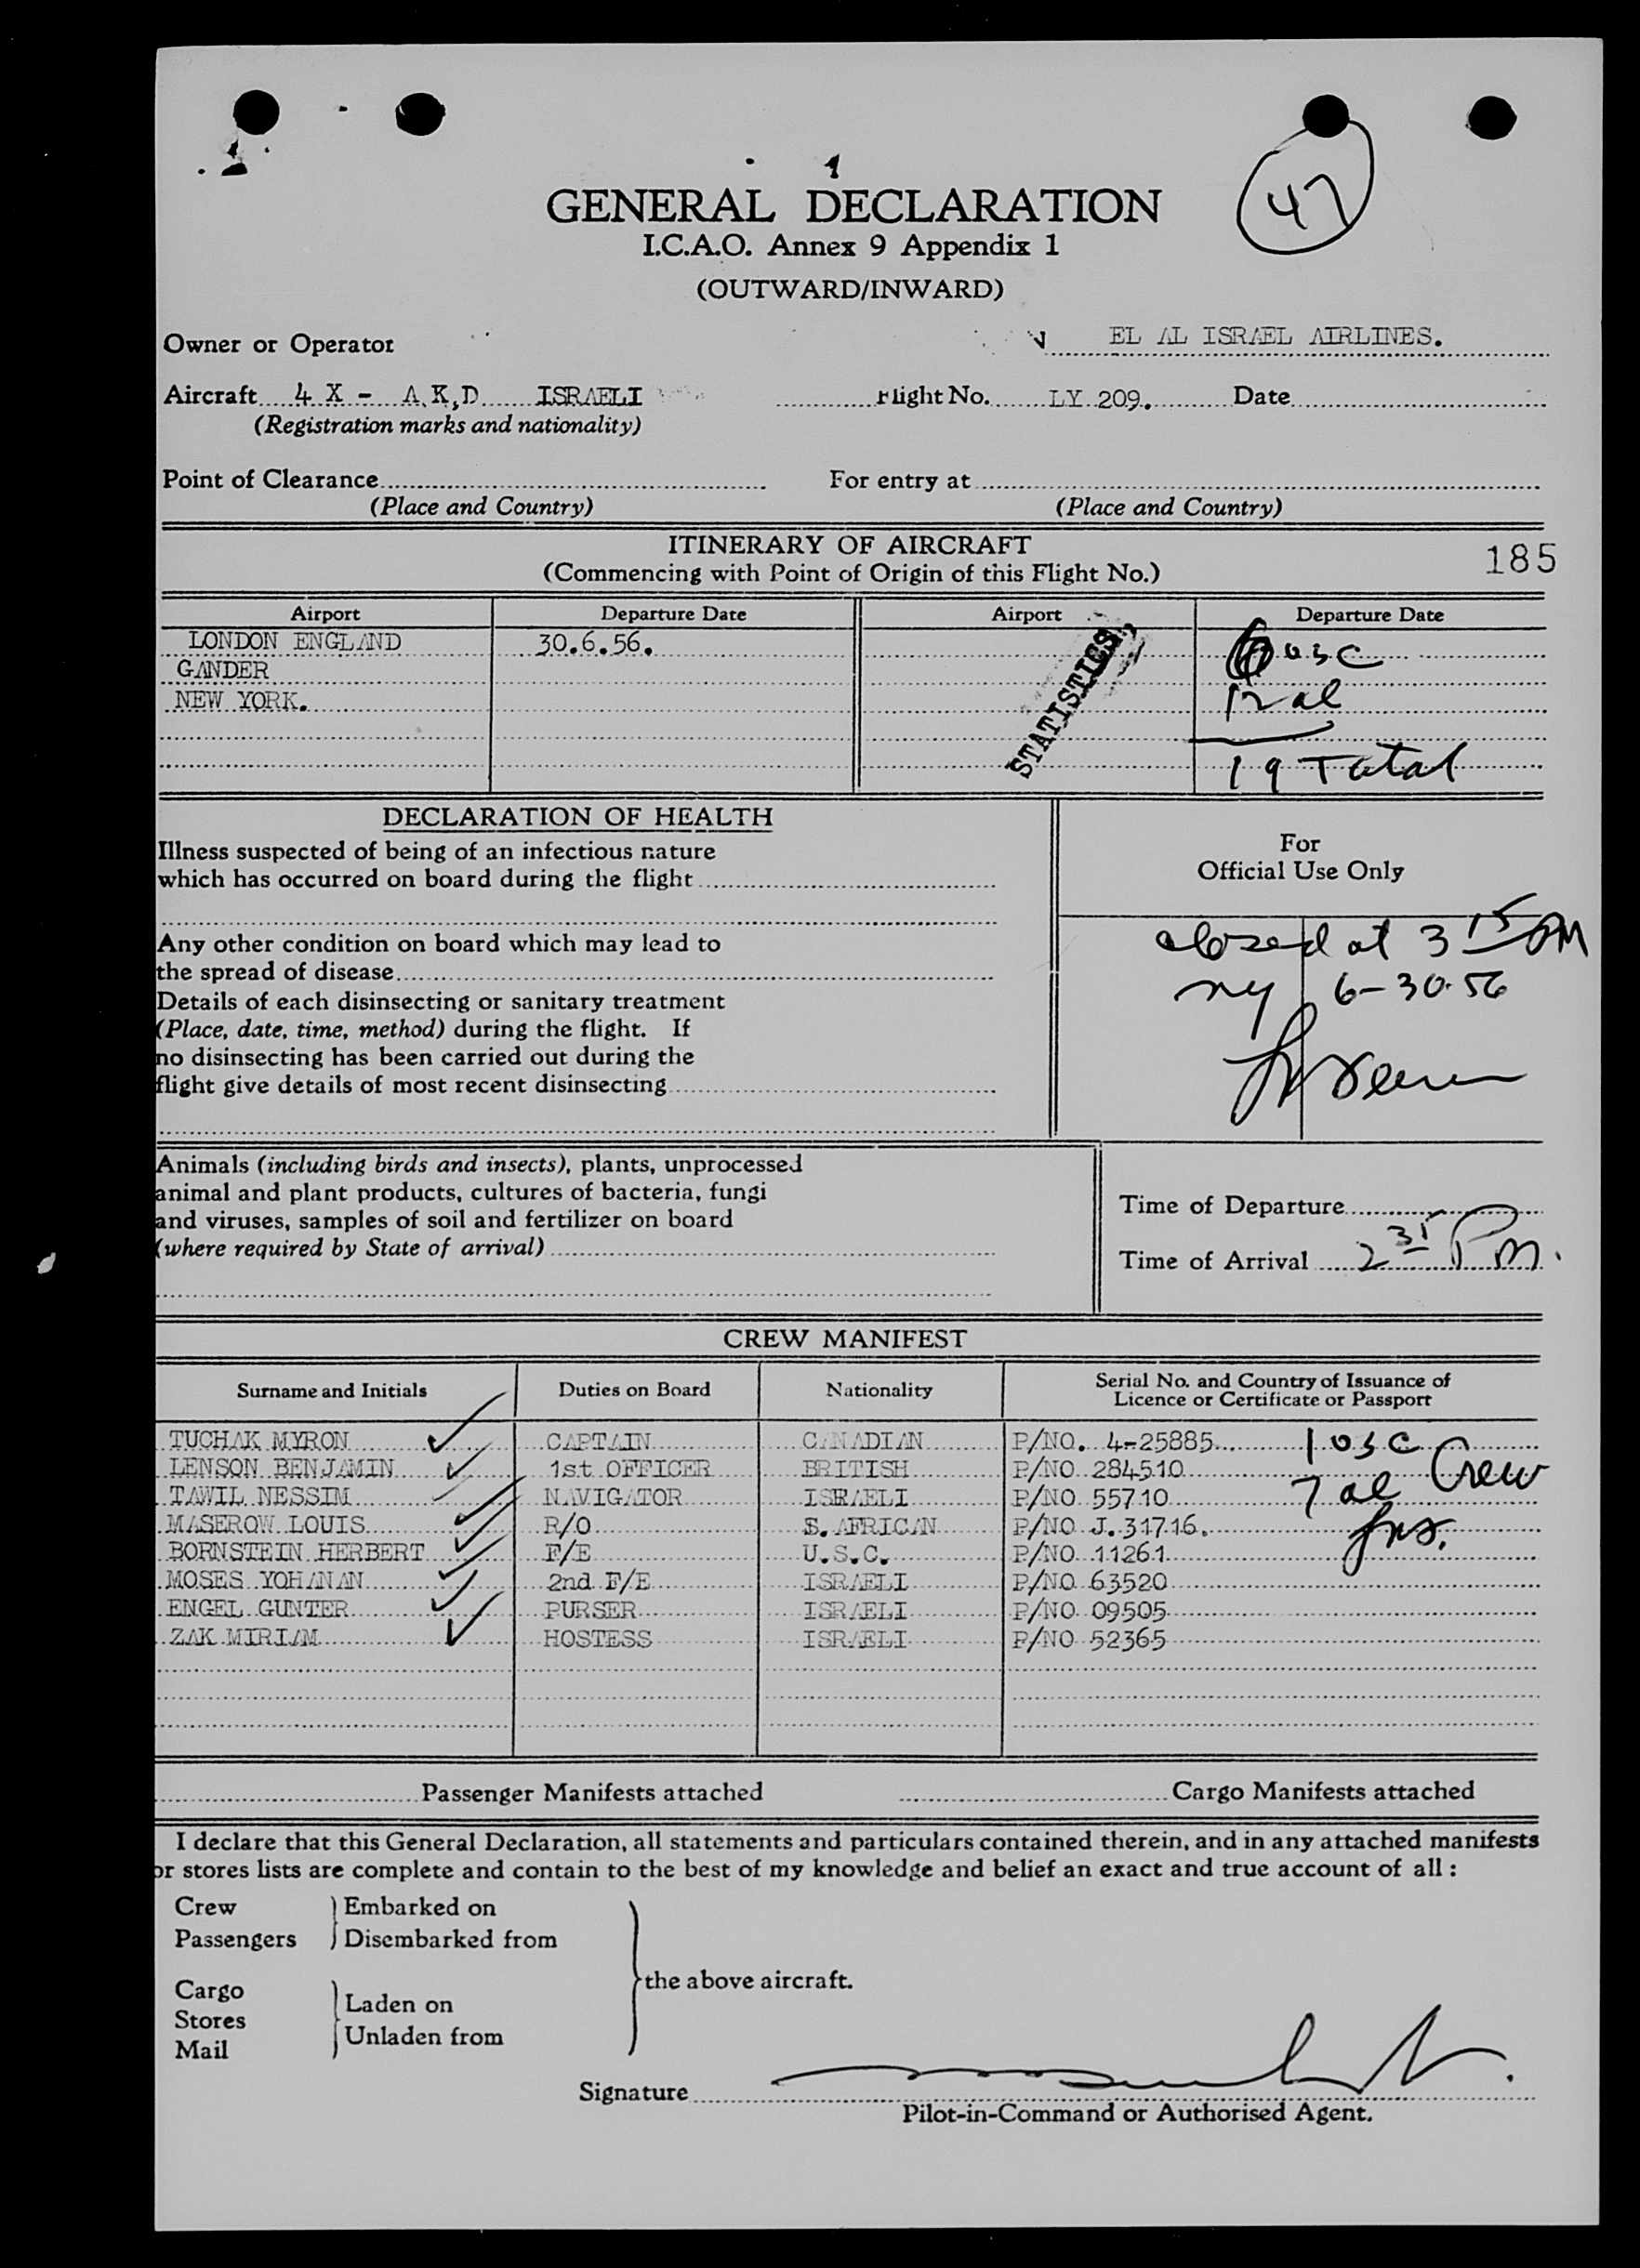 47
GENERAL DECLARATION
I.C.A.O. Annex 9 Appendix 1
(OUTWARD/INWARD)
Owner or Operator EL AL ISRAEL AIRLINES.
Aircraft 4 X - A.K,D ISRAELI Flight No. LY 209. Date
(Registration marks and nationality)
Point of Clearance For entry at
(Place and Country) (Place and Country)
ITINERARY OF AIRCRAFT
(Commencing with Point of Origin of this Flight No.)
185
Airport Departure Date Airport Departure Date
LONDON ENGLAND 30.6.56.
GANDER
NEW YORK.
STATISTICS
usc
12 al
19 Total
DECLARATION OF HEALTH
Illness suspected of being of an infectious nature
which has occurred on board during the flight
Any other condition on board which may lead to
the spread of disease
Details of each disinsecting or sanitary treatment
(Place, date, time, method) during the flight. If
no disinsecting has been carried out during the
flight give details of most recent disinsecting
For
Official Use Only
closed at 3 15 PM
ny 6-30-56
Animals (including birds and insects), plants, unprocessed
animal and plant products, cultures of bacteria, fungi
and viruses, samples of soil and fertilizer on board
(where required by State of arrival)
Time of Departure
Time of Arrival 2 31 Pm.
CREW MANIFEST
Surname and Initials Duties on Board Nationality Serial No. and Country of Issuance of
Licence or Certificate or Passport
TUCHAK MYRON CAPTAIN CANADIAN P/NO. 4-25885
LENSON BENJAMIN 1st OFFICER BRITISH P/NO 284510
TAWIL NESSIM NAVIGATOR ISRAELI P/NO 55710
MASEROW LOUIS R/O S. AFRICAN P/NO J.31716.
BORNSTEIN HERBERT F/E U.S.C. P/NO 11261
MOSES YOHANAN 2nd F/E ISRAELI P/NO 63520
ENGEL GUNTER PURSER ISRAELI P/NO 09505
ZAK MIRIAM HOSTESS ISRAELI P/NO 52365
1 usc Crew
7 al
Passenger Manifests attached Cargo Manifests attached
I declare that this General Declaration, all statements and particulars contained therein, and in any attached manifests
or stores lists are complete and contain to the best of my knowledge and belief an exact and true account of all :
Crew Embarked on
Passengers Disembarked from
the above aircraft.
Cargo
Stores Laden on
Mail Unladen from
Signature
Pilot-in-Command or Authorised Agent.